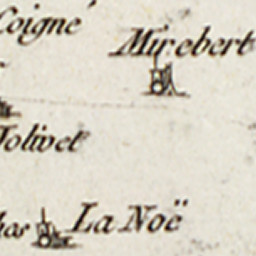 Coigné
Mirebert
Jolivet
La Noë